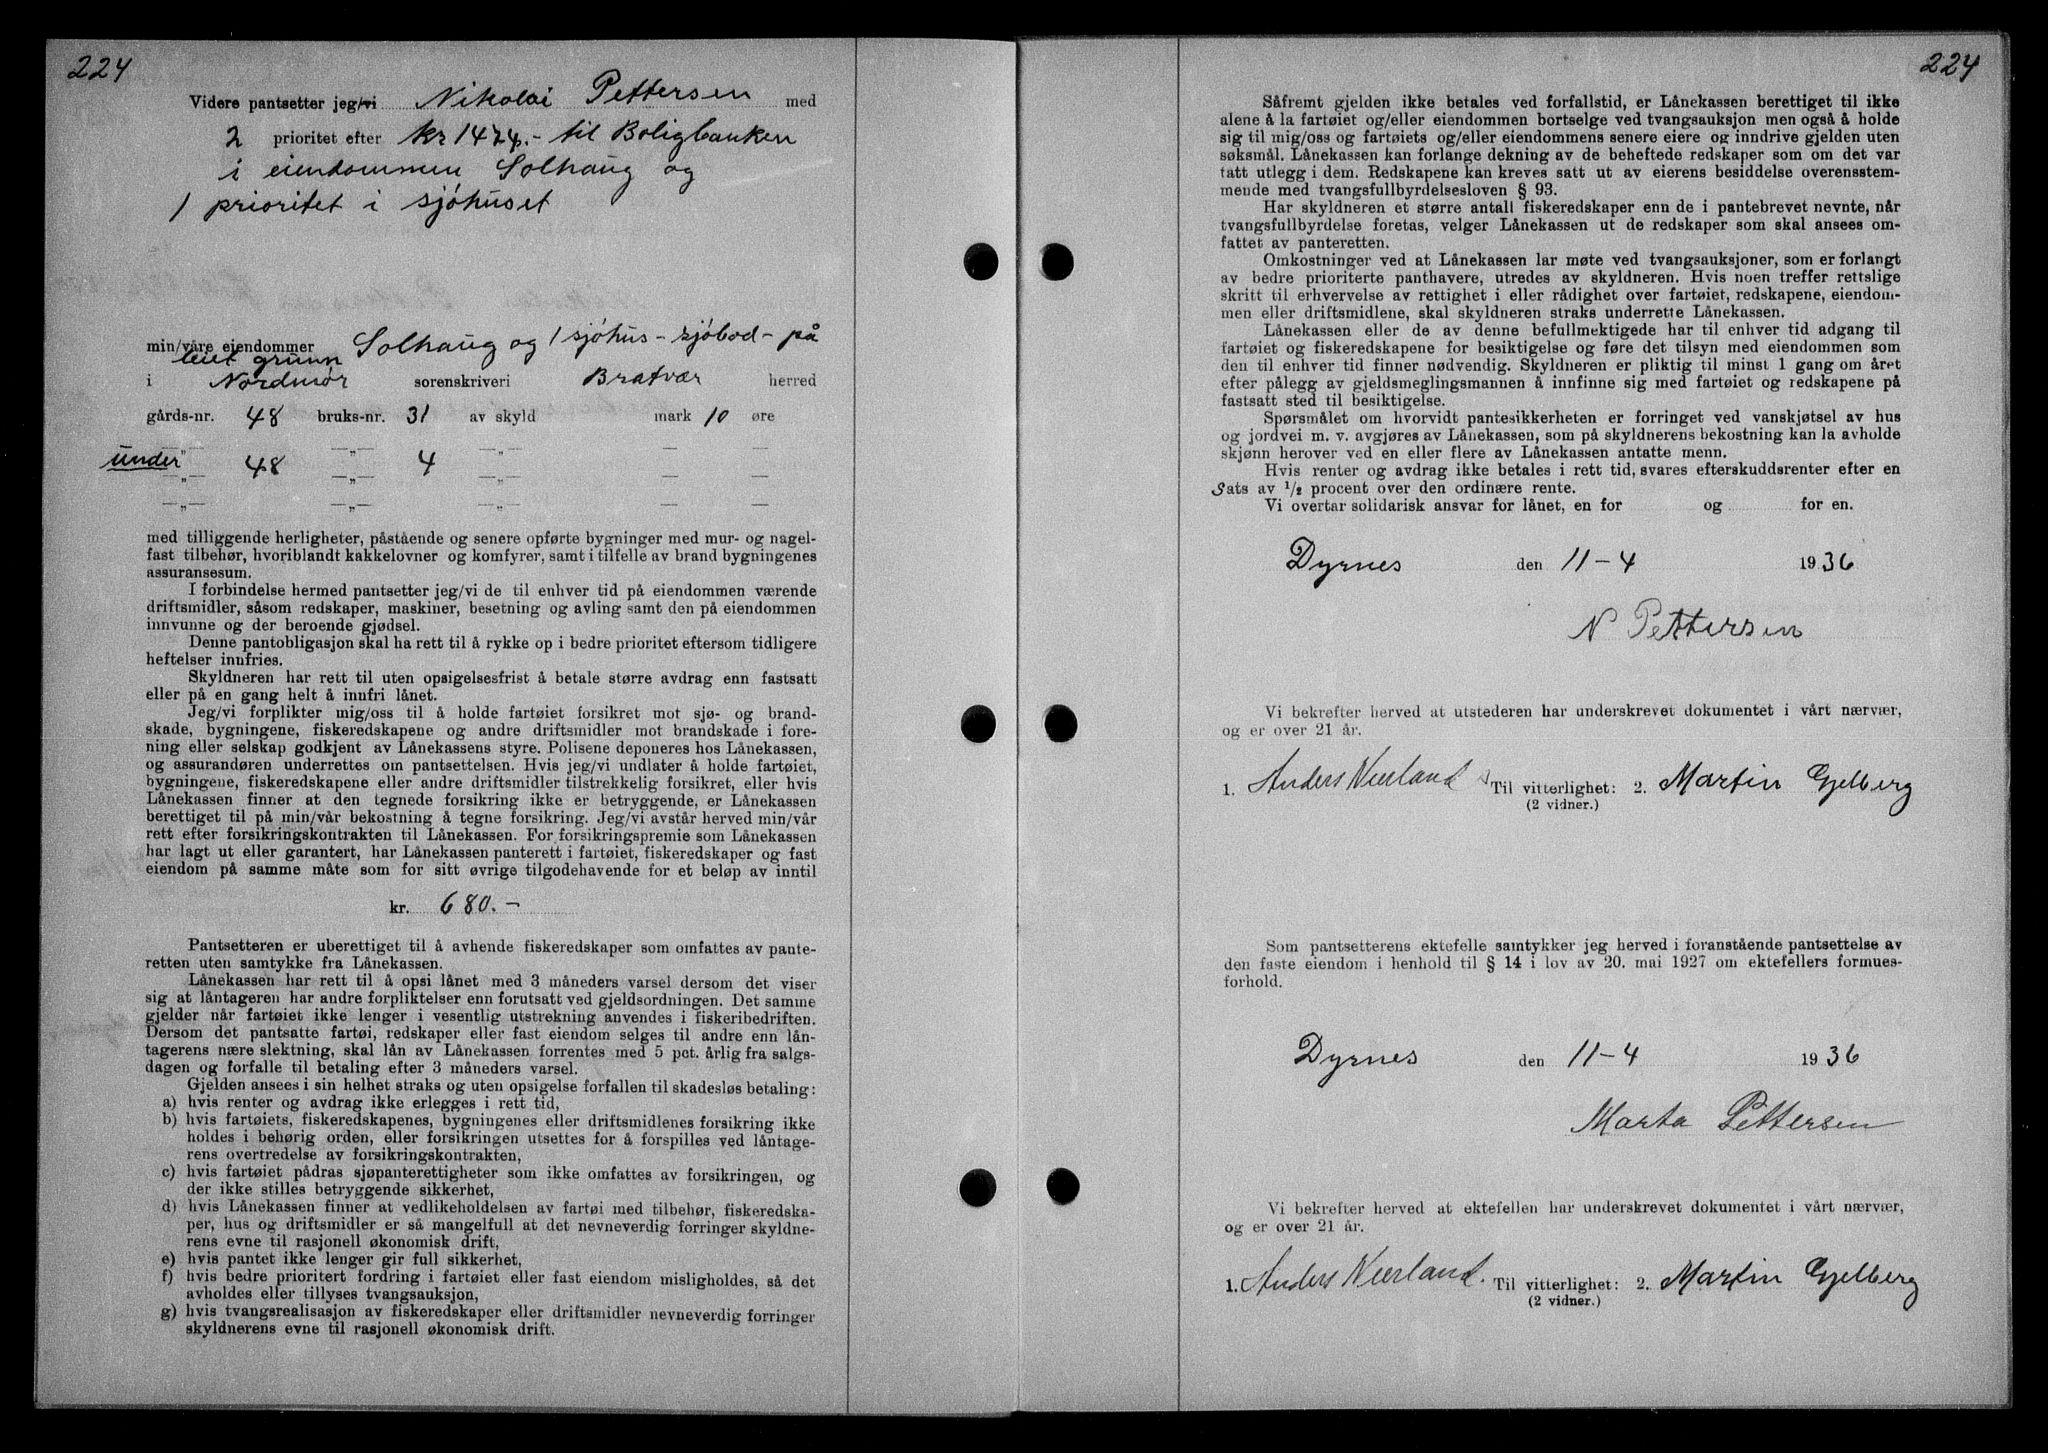 224
Videre pantsetter jeg/vi Nikolai Pettersen med
2 prioritet efter kr 1424.- til Boligbanken
i eiendommen Solhaug og
1 prioritet i sjøhuset
min/våre eiendommer Solhaug og 1 sjøhus - sjøbod - på
leiet grunn
i Nordmør sorenskriveri Bratvær herred
gårds-nr. 48 bruks-nr. 31 av skyld mark 10 øre
under —„— 48 —„— 4 —„— — —
—„— —„— —„— — —
med tilliggende herligheter, påstående og senere opførte bygninger med mur- og nagel-
fast tilbehør, hvoriblandt kakkelovner og komfyrer, samt i tilfelle av brand bygningenes
assuransesum.
I forbindelse hermed pantsetter jeg/vi de til enhver tid på eiendommen værende
driftsmidler, såsom redskaper, maskiner, besetning og avling samt den på eiendommen
innvunne og der beroende gjødsel.
Denne pantobligasjon skal ha rett til å rykke op i bedre prioritet eftersom tidligere
heftelser innfries.
Skyldneren har rett til uten opsigelsesfrist å betale større avdrag enn fastsatt
eller på en gang helt å innfri lånet.
Jeg/vi forplikter mig/oss til å holde fartøiet forsikret mot sjø- og brand-
skade, bygningene, fiskeredskapene og andre driftsmidler mot brandskade i fore-
ning eller selskap godkjent av Lånekassens styre. Polisene deponeres hos Lånekassen,
og assurandøren underrettes om pantsettelsen. Hvis jeg/vi undlater å holde fartøiet,
bygningene, fiskeredskapene eller andre driftsmidler tilstrekkelig forsikret, eller hvis
Lånekassen finner at den tegnede forsikring ikke er betryggende, er Lånekassen
berettiget til på min/vår bekostning å tegne forsikring. Jeg/vi avstår herved min/vår
rett efter forsikringskontrakten til Lånekassen. For forsikringspremie som Lånekassen
har lagt ut eller garantert, har Lånekassen panterett i fartøiet, fiskeredskaper og fast
eiendom på samme måte som for sitt øvrige tilgodehavende for et beløp av inntil
kr. 680.-
Pantsetteren er uberettiget til å avhende fiskeredskaper som omfattes av pante-
retten uten samtykke fra Lånekassen.
Lånekassen har rett til å opsi lånet med 3 måneders varsel dersom det viser
sig at låntageren har andre forpliktelser enn forutsatt ved gjeldsordningen. Det samme
gjelder når fartøiet ikke lenger i vesentlig utstrekning anvendes i fiskeribedriften.
Dersom det pantsatte fartøi, redskaper eller fast eiendom selges til andre enn lån-
tagerens nære slektning, skal lån av Lånekassen forrentes med 5 pct. årlig fra salgs-
dagen og forfalle til betaling efter 3 måneders varsel.
Gjelden ansees i sin helhet straks og uten opsigelse forfallen til skadesløs betaling:
a) hvis renter og avdrag ikke erlegges i rett tid,
b) hvis fartøiets, fiskeredskapenes, bygningenes eller driftsmidlenes forsikring ikke
holdes i behørig orden, eller forsikringen utsettes for å forspilles ved låntage-
rens overtredelse av forsikringskontrakten,
c) hvis fartøiet pådras sjøpanterettigheter som ikke omfattes av forsikringen, og
der ikke stilles betryggende sikkerhet,
d) hvis Lånekassen finner at vedlikeholdelsen av fartøi med tilbehør, fiskeredska-
per, hus og driftsmidler er så mangelfull at det nevneverdig forringer skyldne-
rens evne til rasjonell økonomisk drift,
e) hvis pantet ikke lenger gir full sikkerhet,
f) hvis bedre prioritert fordring i fartøiet eller fast eiendom misligholdes, så det
avholdes eller tillyses tvangsauksjon,
g) hvis tvangsrealisasjon av fiskeredskaper eller driftsmidler nevneverdig forringer
skyldnerens evne til rasjonell økonomisk drift.
224
Såfremt gjelden ikke betales ved forfallstid, er Lånekassen berettiget til ikke
alene å la fartøiet og/eller eiendommen bortselge ved tvangsauksjon men også å holde
sig til mig/oss og fartøiets og/eller eiendommens senere eiere og inndrive gjelden uten
søksmål. Lånekassen kan forlange dekning av de beheftede redskaper som om det var
tatt utlegg i dem. Redskapene kan kreves satt ut av eierens besiddelse overensstem-
mende med tvangsfullbyrdelsesloven § 93.
Har skyldneren et større antall fiskeredskaper enn de i pantebrevet nevnte, når
tvangsfullbyrdelse foretas, velger Lånekassen ut de redskaper som skal ansees om-
fattet av panteretten.
Omkostninger ved at Lånekassen lar møte ved tvangsauksjoner, som er forlangt
av bedre prioriterte panthavere, utredes av skyldneren. Hvis noen treffer rettslige
skritt til erhvervelse av rettighet i eller rådighet over fartøiet, redskapene, eiendom-
men eller driftsmidlene, skal skyldneren straks underrette Lånekassen.
Lånekassen eller de av denne befullmektigede har til enhver tid adgang til
fartøiet og fiskeredskapene for besiktigelse og føre det tilsyn med eiendommen som
den til enhver tid finner nødvendig. Skyldneren er pliktig til minst 1 gang om året
efter pålegg av gjeldsmeglingsmannen å innfinne sig med fartøiet og redskapene på
fastsatt sted til besiktigelse.
Spørsmålet om hvorvidt pantesikkerheten er forringet ved vanskjøtsel av hus
og jordvei m. v. avgjøres av Lånekassen, som på skyldnerens bekostning kan la avholde
skjønn herover ved en eller flere av Lånekassen antatte menn.
Hvis renter og avdrag ikke betales i rett tid, svares efterskuddsrenter efter en
Sats av 1/2 procent over den ordinære rente.
Vi overtar solidarisk ansvar for lånet, en for og for en.
Dyrnes den 11-4 1936
N Pettersen
Vi bekrefter herved at utstederen har underskrevet dokumentet i vårt nærvær,
og er over 21 år.
1. Anders Nerland Til vitterlighet: 2. Martin Gjelberg
(2 vidner.)
Som pantsetterens ektefelle samtykker jeg herved i foranstående pantsettelse av
den faste eiendom i henhold til § 14 i lov av 20. mai 1927 om ektefellers formues-
forhold.
Dyrnes den 11-4 1936
Marta Pettersen
Vi bekrefter herved at ektefellen har underskrevet dokumentet i vårt nærvær,
og er over 21 år.
1. Anders Nerland. Til vitterlighet: 2. Martin Gjelberg
(2 vidner.)